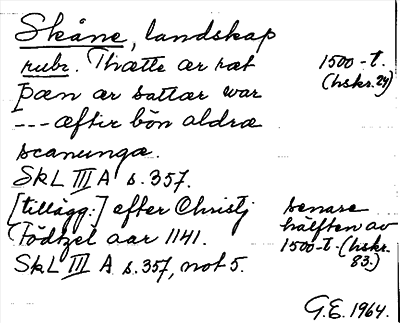 Skåne, landskap
rubr. Thætte ær ræt
1500-t.
þæn ær sattær war
(hskr. 24)
--- æftir bön aldræ
scanungæ.
SkL III A s. 357.
[tillägg:] efter Christj
senare
hälften av
Födtzel aar 1141.
1500-t. (hskr.
83.)
SkL III A s. 357, not 5.
G.E. 1964.